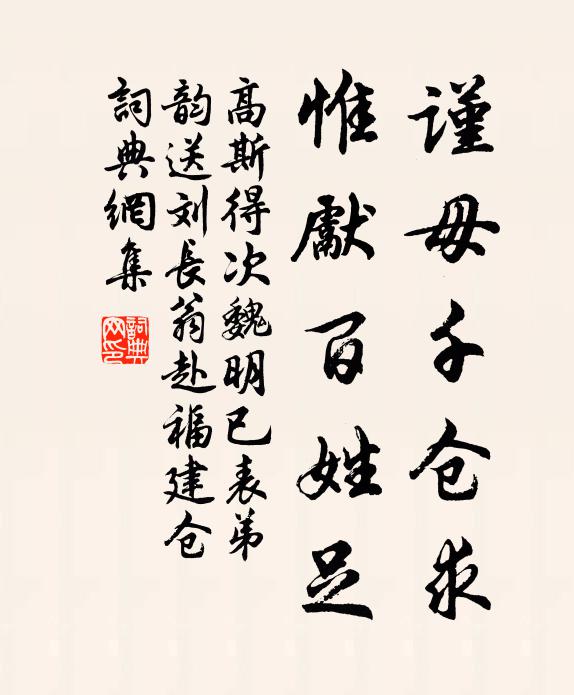 謹毋千仓求
惟獻百姓足
高斯得次魏明已表弟
韵送刘長翁赴福建仓
詞典網集
詞典
网印